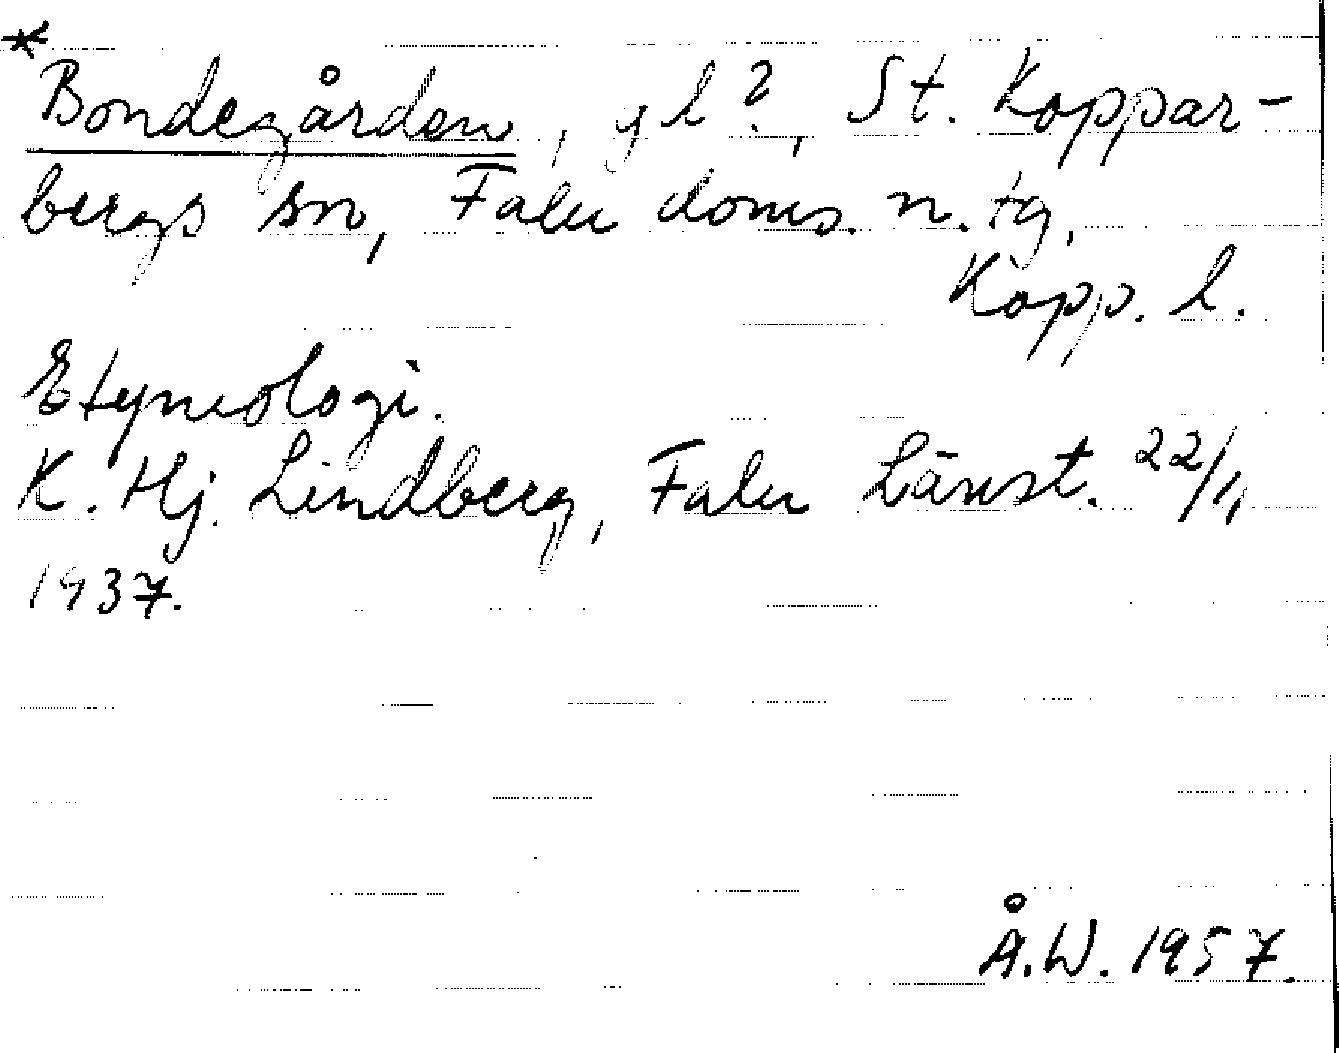 * Bondegården, gl?, St. Koppar-
bergs sn, Falu doms. n. tg,
Kopp. l.
Etymologi.
K. Hj. Lindberg, Falu Länst. 22/1,
1937.
Å.W. 1957.